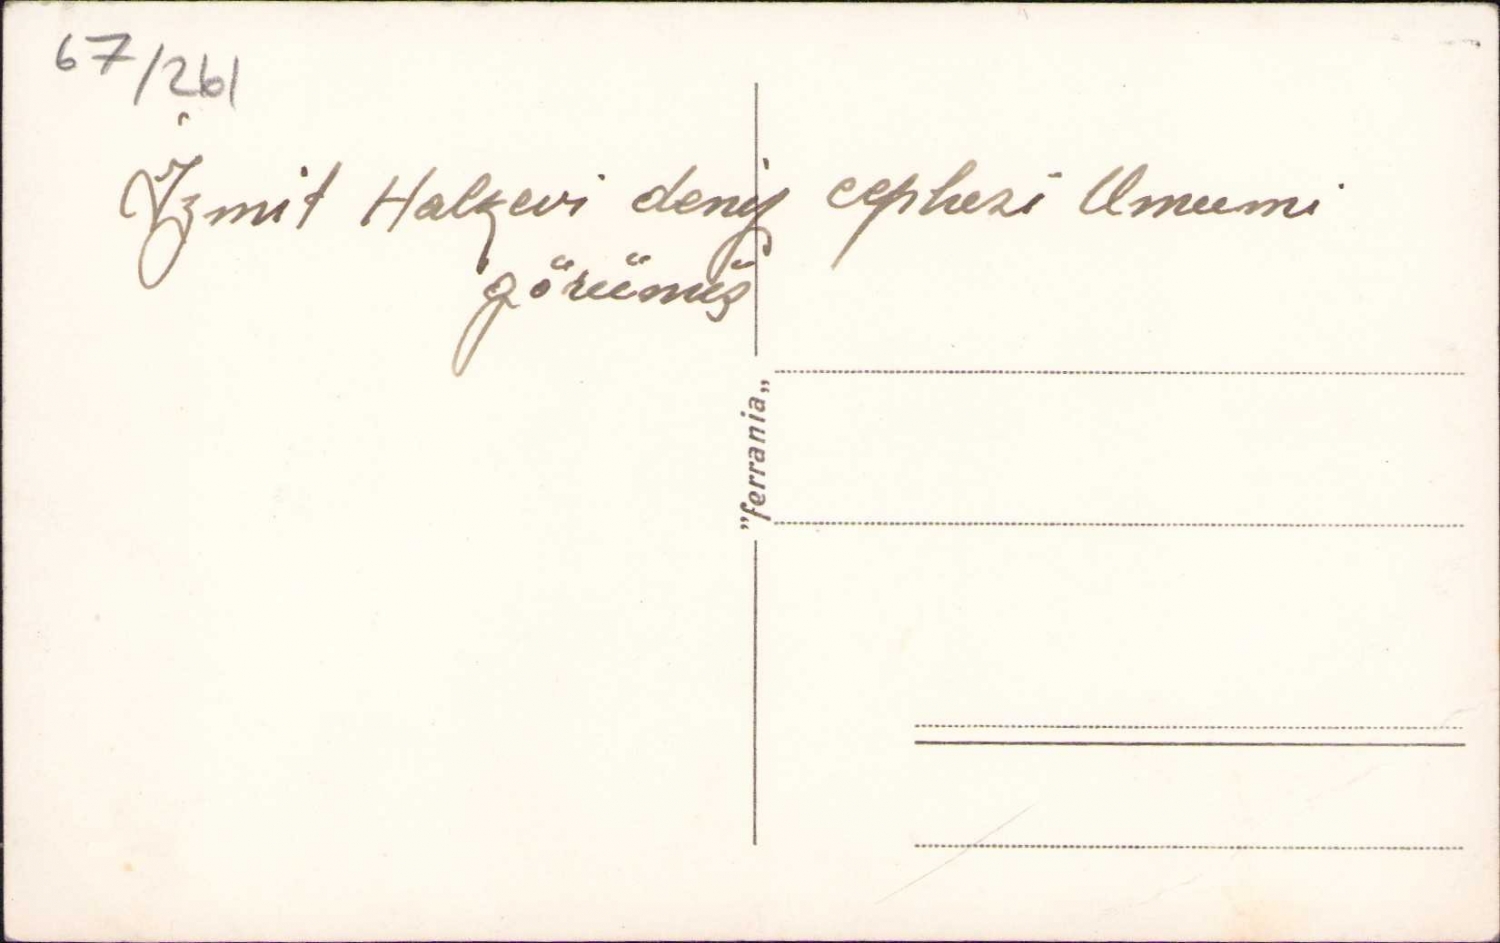 67/261
İzmit Halkevi deniz cephesi Umumi
görünüş
"ferrania"